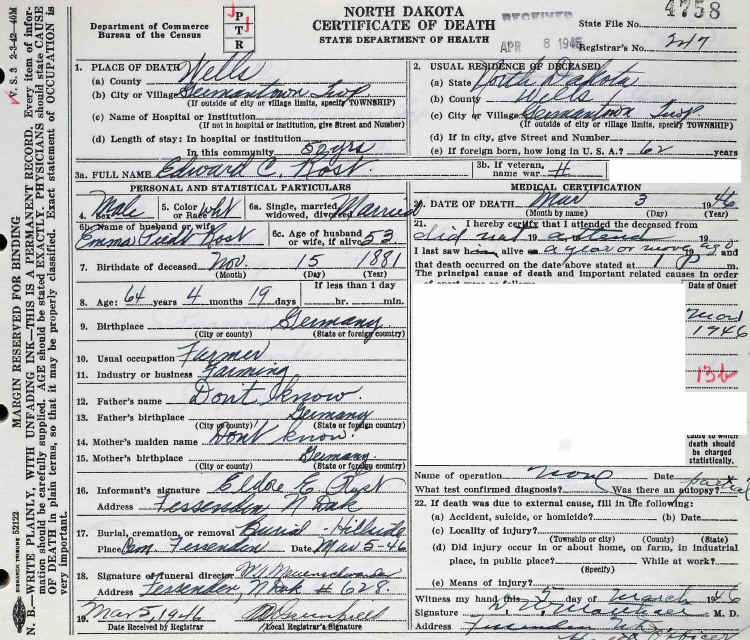 NORTH DAKOTA
CERTIFICATE OF DEATH
STATE DEPARTMENT OF HEALTH
Department of Commerce
Bureau of the Census
P
T
R
RECEIVED
APR 8 1946
4758
State File No.
Registrar's No. 247
V. S. 3 2-3-42-40M
MARGIN RESERVED FOR BINDING
N. B.—WRITE PLAINLY, WITH UNFADING INK—THIS IS A PERMANENT RECORD. Every item of information should be carefully supplied. AGE should be stated EXACTLY. PHYSICIANS should state CAUSE OF DEATH in plain terms, so that it may be properly classified. Exact statement of OCCUPATION is very important.
1. PLACE OF DEATH
(a) County Wells
(b) City or Village Germantown Twp
(If outside of city or village limits, specify TOWNSHIP)
(c) Name of Hospital or Institution
(If not in hospital or institution, give Street and Number)
(d) Length of stay: In hospital or institution
In this community 50 yrs
2. USUAL RESIDENCE OF DECEASED
(a) State North Dakota
(b) County Wells
(c) City or Village Germantown Twp
(If outside of city or village limits, specify TOWNSHIP)
(d) If in city, give Street and Number
(e) If foreign born, how long in U. S. A.? 62 years
3a. FULL NAME Edward C. Rost
3b. If veteran, name war
PERSONAL AND STATISTICAL PARTICULARS
4. Sex Male
5. Color or Race Wht
6a. Single, married, widowed, divorced Married
6b. Name of husband or wife
Emma Rost
6c. Age of husband or wife, if alive 53
7. Birthdate of deceased Nov. 15 1881
(Month) (Day) (Year)
8. Age: 64 years 4 months 19 days
If less than 1 day
hr. min.
9. Birthplace Germany
(City or county) (State or foreign country)
10. Usual occupation Farmer
11. Industry or business Farming
12. Father's name Don't know
13. Father's birthplace Germany
(City or County) (State or foreign country)
14. Mother's maiden name Don't know
15. Mother's birthplace Germany
(City or County) (State or foreign country)
16. Informant's signature E. Rost
Address Fessenden, N Dak
17. Burial, cremation, or removal Burial - Hillside
Place Cem. Fessenden Date Mar 5-46
18. Signature of funeral director
Address Fessenden, N Dak # 628
19. Mar 5, 1946
Date Received by Registrar Local Registrar's Signature
MEDICAL CERTIFICATION
20. DATE OF DEATH Mar 3 1946
(Month by name) (Day) (Year)
21. I hereby certify that I attended the deceased from
did not 19 attend 19
I last saw him alive a year or more ago
that death occurred on the date above stated at 1 p m.
The principal cause of death and important related causes in order
Date of Onset
1946
13b
cause to which death should be charged statistically.
Name of operation none Date
What test confirmed diagnosis? Was there an autopsy?
22. If death was due to external cause, fill in the following:
(a) Accident, suicide, or homicide? (b) Date
(c) Locality of injury?
(Township or city) (County) (State)
(d) Did injury occur in or about home, on farm, in industrial
place, in public place? While at work?
(Specify)
(e) Means of injury?
Witness my hand this 5 day of March 1946
Signature M. D.
Address Fessenden N.D.